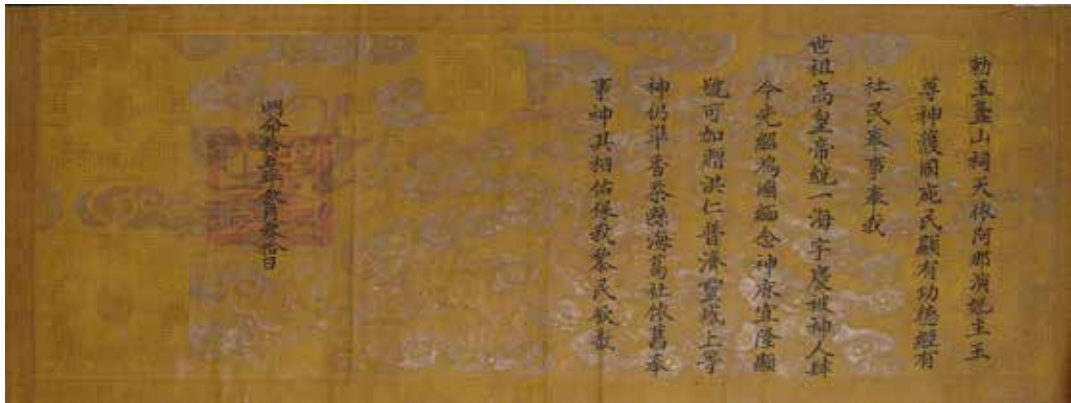 勅玉盞山祠天依阿那演妃主玉
尊神護國庇民顯有功德經有
社民奉事奉我
世祖高皇帝統一海宇慶被神人肆
今光紹鴻圖緬念神庥宜隆顯
號可加贈洪仁普濟靈感上等
神仍準香茶縣海葛社依舊奉
事神其相佑保我黎民欽哉
明命拾年月拾日